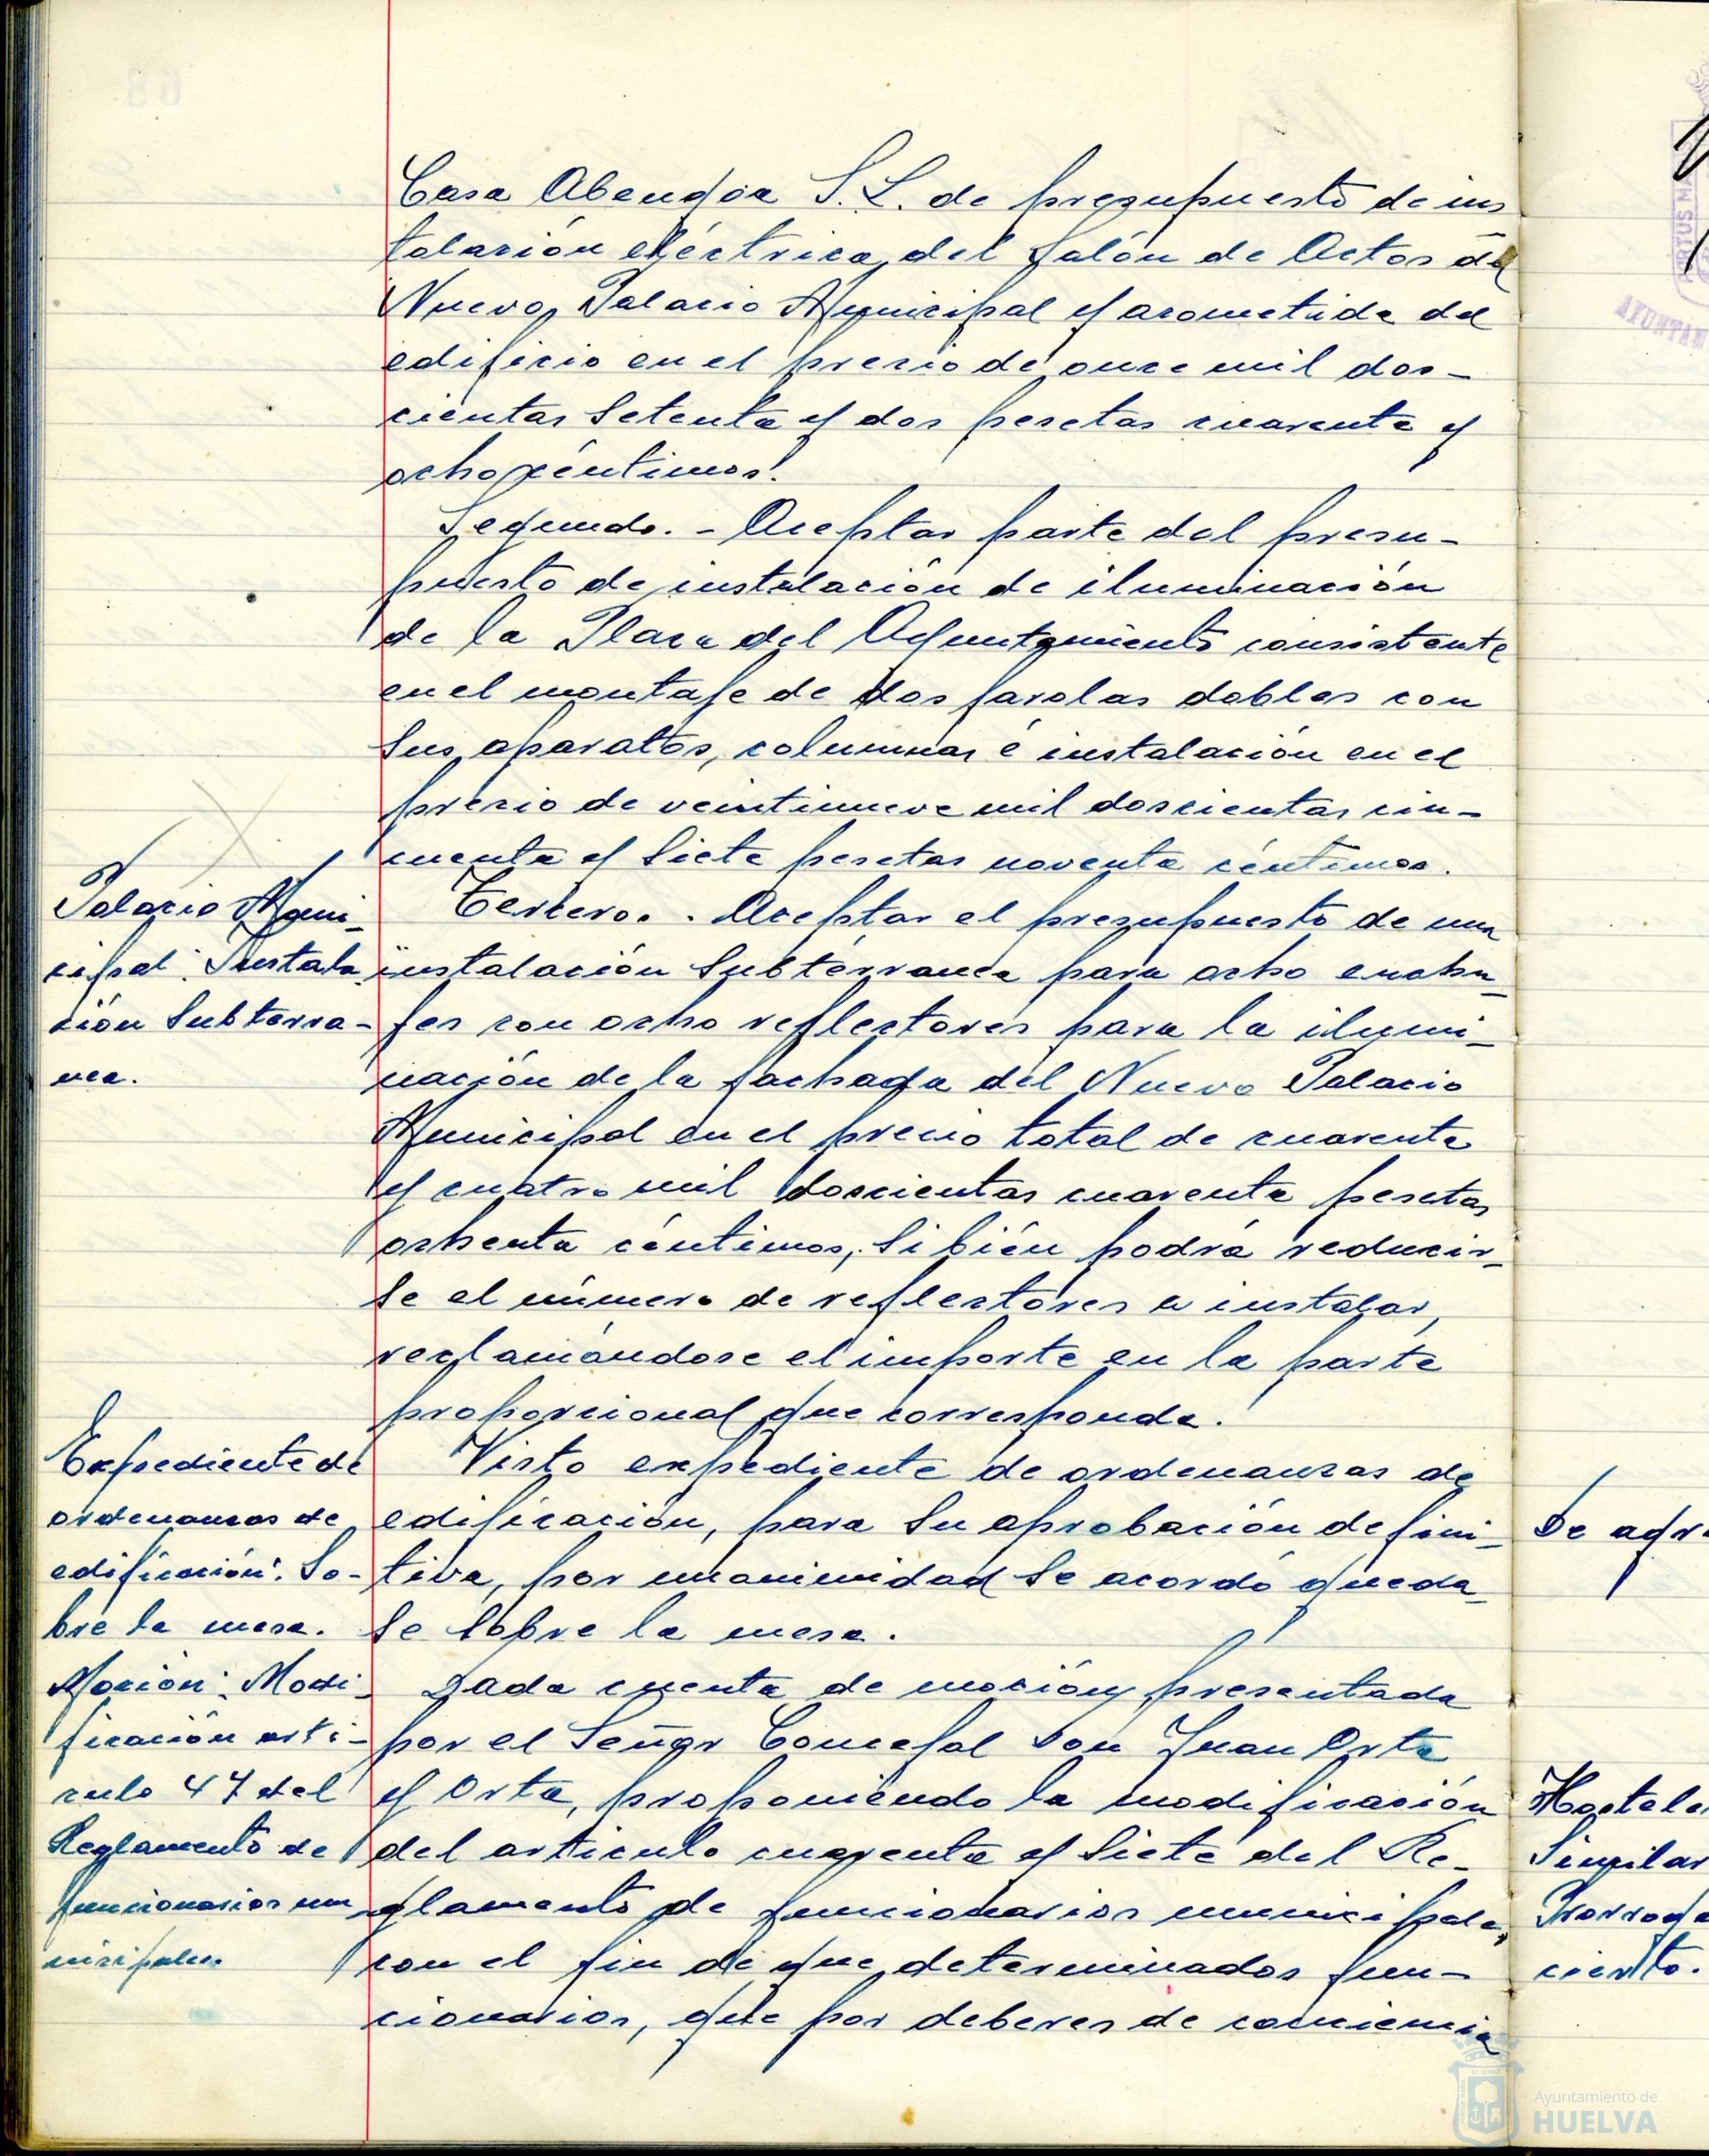 Casa Abengoa S.L. de presupuesto de ins
talación eléctrica, del Salón de Actos del
Nuevo Palacio Municipal y acometida del
edificio en el precio de once mil dos-
cientas setenta y dos pesetas cuarenta y
ocho céntimos.
Segundo. - Aceptar parte del presu-
puesto de instalación de iluminación
de la Plaza del Ayuntamiento consistente
en el montaje de dos farolas dobles con
sus aparatos, columnas é instalación en el
precio de veintinueve mil doscientas cin-
cuenta y siete pesetas noventa céntimos.
Palacio Muni-
cipal: Instala
ción Subterra-
nea.
Tercero. - Aceptar el presupuesto de una
instalación subterranea para ocho enchu-
fes con ocho reflectores para la ilumi-
nación de la fachada del Nuevo Palacio
Municipal en el precio total de cuarenta
y cuatro mil doscientas cuarenta pesetas
ochenta céntimos, si bién podrá reducir-
se el número de reflectores a instalar,
reclamándose el importe en la parte
proporcional que corresponda.
Expediente de
ordenanzas de
edificación. So-
bre la mesa.
Visto expediente de ordenanzas de
edificación, para su aprobación defini-
tiva, por unanimidad se acordó queda-
se sobre la mesa.
Moción: Modi-
ficación arti-
culo 47 del
Reglamento de
funcionarios mu
nicipales.
Dada cuenta de moción presentada
por el Señor Concejal Don Juan Orta
y Orta, proponiendo la modificación
del articulo cuarenta y siete del Re-
glamento de funcionarios municipales,
con el fin de que determinados fun-
cionarios, que por deberes de conciencia
Se agr
Hostele
Singilar
Prorroga
ciento.
AYUNTAM
Ayuntamiento de
HUELVA